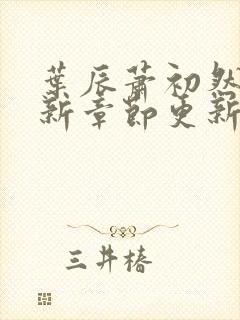 葉辰蕭初然
新章節更新
三井椿